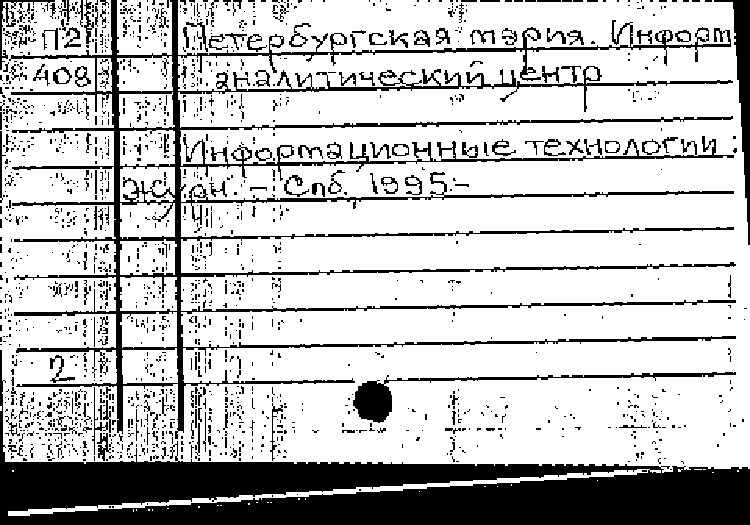 П2 Петербургская мэрия. Информ
408 аналитический центр
Информационные технологии :
журн. – Спб. 1995.–
2